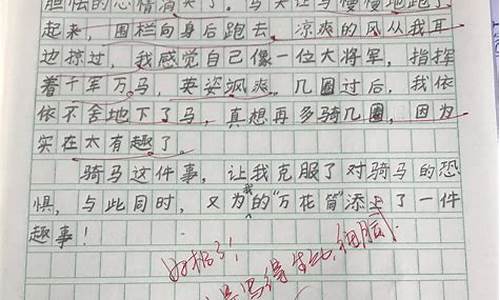 胆怯的心情消失了。马又让马慢慢地跑了
起来，围栏向身后跑去，凉爽的风从我耳
边掠过，我感觉自己像一位大将军，指挥
着千军万马，英姿飒爽。几圈过后，我依
依不舍地下了马，真想再多骑几圈，因为
实在太有趣了。
骑马这件事，让我克服了对骑马的恐
惧，与此同时，又为我的“万花筒”添上了一件
趣事！
好极了！
写得生动、细腻。